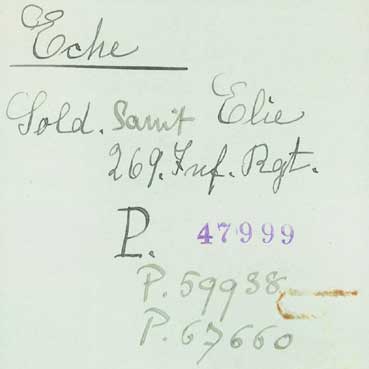 Eche
Sold. Sanit Elie
269. Inf. Rgt.
P. 47999
P. 59938
P. 67660